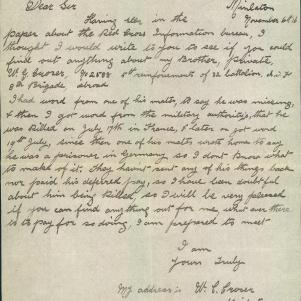 Mingleton
Dear Sir November 6th 16
Having seen in the
paper about the Red Cross Information bureau, I
thought I would write to you to see if you could
find out anything about my Brother, private,
W. G. Croser, No 2588 5th reinforcements of 32 Battalion,
8th Brigade, abroad
I had word from one of his mates, to say he was missing,
& then I got word from the military authority, that he
was killed on July 17th in France, & later on got word
19th July, since then one of his mates wrote home to say
he was a prisoner in Germany so I dont know what
to make of it. They havent sent any of his things back
nor paid his deferred pay, so I have been doubtful
about him being killed, so I will be very pleased
if you can find anything out for me, what ever there
is to pay for so doing, I am prepared to meet
I am
Yours Truly
My address is W. C. Croser